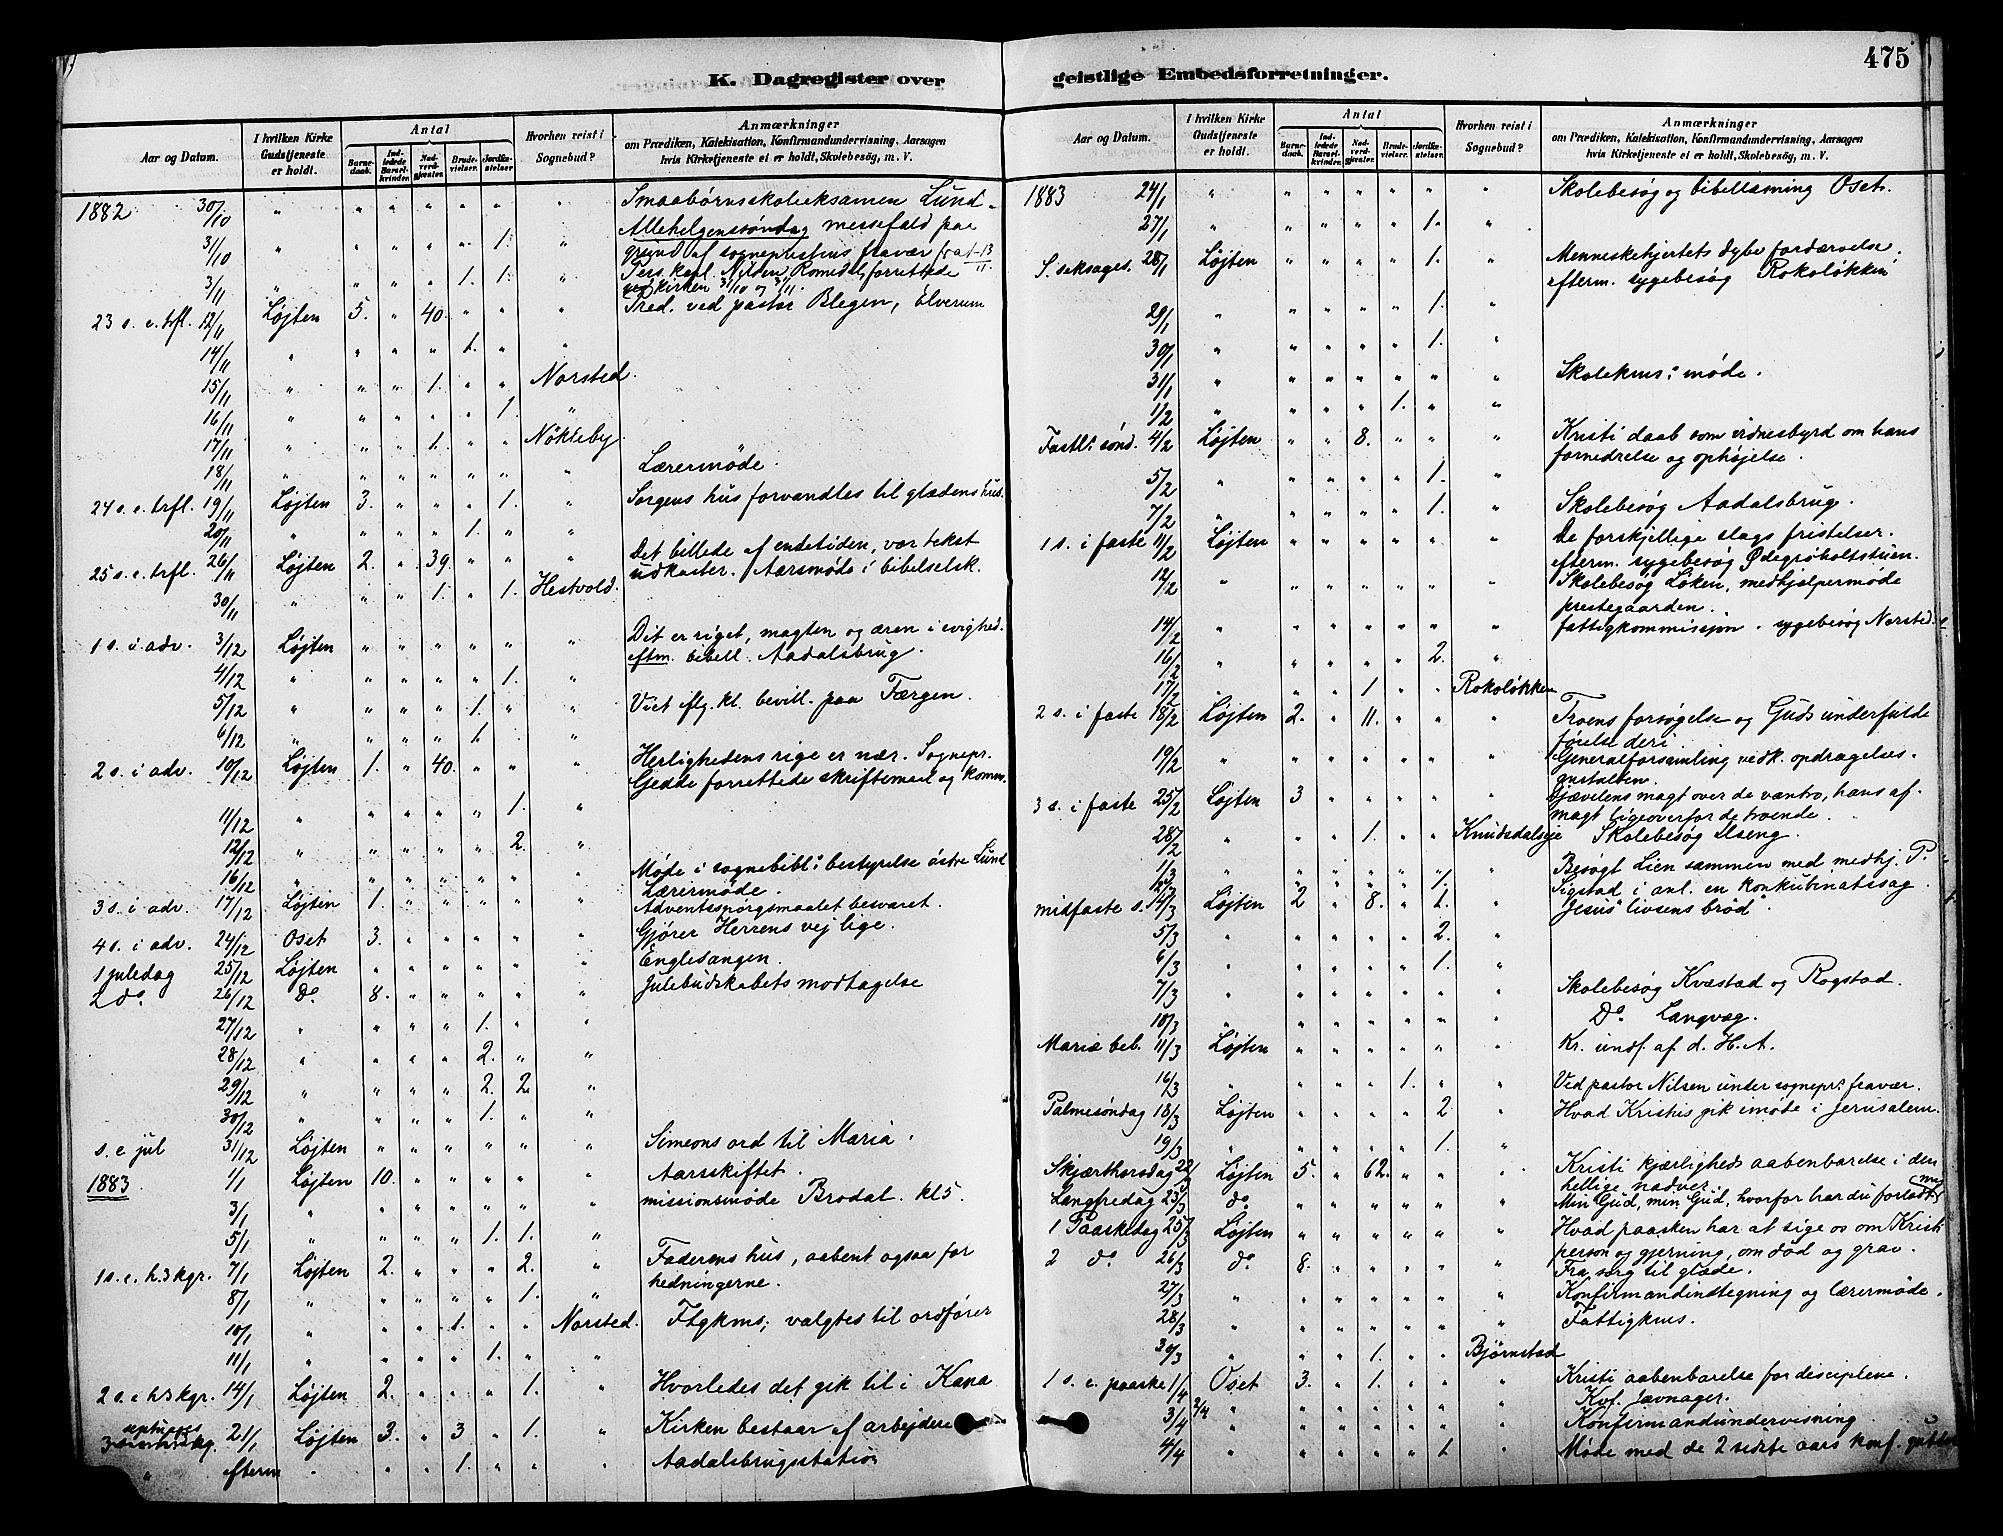 475
K. Dagregister over
geistlige Embedsforretninger.
Aar og Datum. I hvilken Kirke Gudstjeneste er holdt. Antal Barnedaab. Indledede Barselkvinder. Nadverdgjester. Brudevielser. Jordfæstelser Hvorhen reist i Sognebud? Anmærkninger om Prædiken, Katekisation, Konfirmandundervisning, Aarsagen hvis Kirketjeneste ei er holdt, Skolebesøg, m. V.
1882 30/10 " " " " " " " Smaabørnsskoleeksamen Lund
31/10 " " " " " 1. " Allehelgenssøndag messefald paa
grund af sogneprestens fravær fra 1-13/11
3/11 " " " " 1. 1. " Pers. kapl. Nilsen, Romedal, forrettede
ved kirken 31/10 og 3/11.
23 s. e. trfl. 12/11 Løjten 5. " 40. " " " Præd. ved pastor Blegen, Elverum
14/11 " " " " 1. " "
15/11 " " " 1. " " Norsted.
16/11 " " " " " 1. "
17/11 " " " 1. " " Nøkleby.
18/11 " " " " " " " Lærermøde.
24 s. e. trfl. 19/11 Løjten 3. " " " 1. " Sorgens hus forvandles til glædens hus.
20/11 " " " " 1. " "
25 s. e. trfl. 26/11 Løjten 2. " 39. " " " Det billede af endetiden, vor tekst
udkaster. Aarsmøde i bibelselsk.
30/11 " " " 1. " 1. Hestvold.
1 s. i adv. 3/12 Løjten " " " " " " Dit er riget, magten og æren i evighed.
eftm. bibell. Aadalsbrug.
4/12 " " " " " 1. "
5/12 " " " " 1. " " Viet iflg. kl. bevill. paa Færgen.
6/12 " " " " 1. " "
2 s. i adv. 10/12 Løjten 1. " 40. " " " Herlighedens rige er nær. Sognepr.
Gedde forrettede skriftemaal og komm.
11/12 " " " " " 1. "
12/12 " " " " " 2. "
16/12 " " " " " " " Møde i sognebibl: bestyrelse østre Lund
Lærermøde.
3 s. i adv. 17/12 Løjten 1. " " " " " Adventsspørgsmaalet besvaret.
4 s. i adv. 24/12 Oset 3. " " " " " Gjører Herrens vej lige.
1 juledag 25/12 Løjten " " " " " " Englesangen.
2 do 26/12 Do 8. " " " " " Julebudskabets modtagelse
27/12 " " " " 1. " "
28/12 " " " " 2. " "
29/12 " " " " 2. 2. "
30/12 " " " " 1. " "
s. e jul 31/12 Løjten " " " " " " Simeons ord til Maria.
1883 1/1 Løjten 10. " " " " " Aarsskiftet.
3/1 " " " " " " " missionsmøde Brodal. kl 5.
5/1 " " " " 1. 1. "
1 s. e. h. 3 kgr. 7/1 Løjten 2. " " " 2. " Faderens hus, aabent ogsaa for
hedningerne.
8/1 " " " " " 1. "
10/1 " " " 1. " " Norsted. Ftgkms; valgtes til ordfører
11/1 " " " " 1. " "
2 s. e h 3 kgr. 14/1 Løjten 2. " " " 1. " Hvorledes det gik til i Kana
21/1 Løjten 3. " 3 " 1. " Kirken bestaar af arbejdere
" efterm " " " 1. " " " Aadalsbrugsstation
Aar og Datum. I hvilken Kirke Gudstjeneste er holdt. Antal Barnedaab. Indledede Barselkvinder. Nadverdgjester. Brudevielser. Jordfæstelser. Hvorhen reist i Sognebud? Anmærkninger om Prædiken, Katekisation, Konfirmandundervisning, Aarsagen hvis Kirketjeneste ei er holdt, Skolebesøg, m. V.
1883 24/1 " " " " " " " Skolebesøg og bibellæsning Oset.
27/1 " " " " " 1. "
S. seksages. 28/1 Løjten " " " " 1. " Menneskehjertets dybe fordærvelse;
efterm. sygebesøg Rokoløkken
29/1 " " " " " 1. "
30/1 " " " " " 1. "
31/1 " " " " " " " Skolekms: møde.
1/2 " " " " 1. " "
Fastl. sønd. 4/2 Løjten " " 8. " " " Kristi daab som vidnesbyrd om hans
fornedrelse og ophøjelse.
5/2 " " " " " 1. "
7/2 " " " " " 1. " Skolebesøg Aadalsbrug.
1 s. i faste 11/2 Løjten " " " " " " De forskjellige slags fristelser.
efterm. sygebesøg Ødegrøholtstuen.
12/2 " " " " " " " Skolebesøg Løken, medhjælpermøde
prestegaarden.
14/2 " " " " " " " fattigkommissjon. sygebesøg Norsted.
16/2 " " " " " 2. "
17/2 " " " 1 " " Rokoløkken
2 s. i faste 18/2 Løjten 2. " 11. " " " Troens forsøgelse og Guds underfulde
førelse deri.
19/2 " " " " " " " Generalforsamling vedk. opdragelses-
anstalten.
3 s. i faste 25/2 Løjten 3 " " " " " Djævelens magt over de vantro, hans af-
magt ligeoverfor de troende.
28/2 " " " 1. " " Knudsdalseje Skolebesøg Ilseng.
1/3 " " " " " 1. " Besøgt Lien sammen med medhj. P.
Sigstad i anl. en konkubinatssag.
midfaste s. 4/3 Løjten 2 " 8. " 1. " Jesus "livsens brød".
5/3 " " " " " 2. "
6/3 " " " " " 1. "
7/3 " " " " " " " Skolebesøg Kvæstad og Rogstad.
10/3 " " " " " " " Do. Langvæg.
Mariæ beb. 11/3 Løjten " " " " " " Kr. undf. af d. H. A.
16/3 " " " " 1. " " Ved pastor Nilsen under sognepr: fravær.
Palmesøndag 18/3 Løjten " " " " 2. " Hvad Kristus gik imøde i Jerusalem.
19/3 " " " " " 1. "
Skjærthorsdag 22/3 Løjten 5. " 62. " " " Kristi kjærligheds aabenbarelse i den
hellige nadver.
Langfredag 23/3 do " " " " " " Min Gud, min Gud, hvorfor har du forladt mig
1 Paaskedag 25/3 Løjten " " " " " " Hvad paasken har at sige os om Kristi
person og gjerning, om død og grav.
2 do 26/3 do. 8. " " " " " Fra sorg til glæde.
27/3 " " " " " " " Konfirmandindtegning og lærermøde.
28/3 " " " " " " " Fattigkms.
30/3 " " " 1. " " Bjørnstad
1 s. e. paaske 1/4 Oset 3. " 1. " " " Kristi aabenbarelse for disciplene.
2/4 Kvf. Jævnager.
3/4 " " " " " " " Konfirmandundervisning
4/4 " " " " " 1 " Møde med de 2 sidste aars konf. gutter